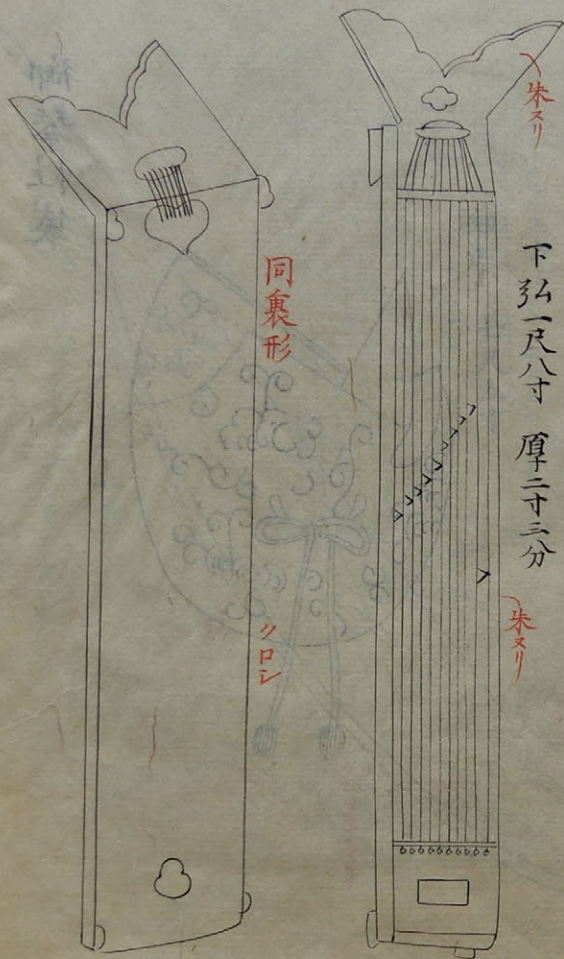 朱ヌリ
下弘一尺八寸 厚二寸三分
朱ヌリ
同裏形
クロシ